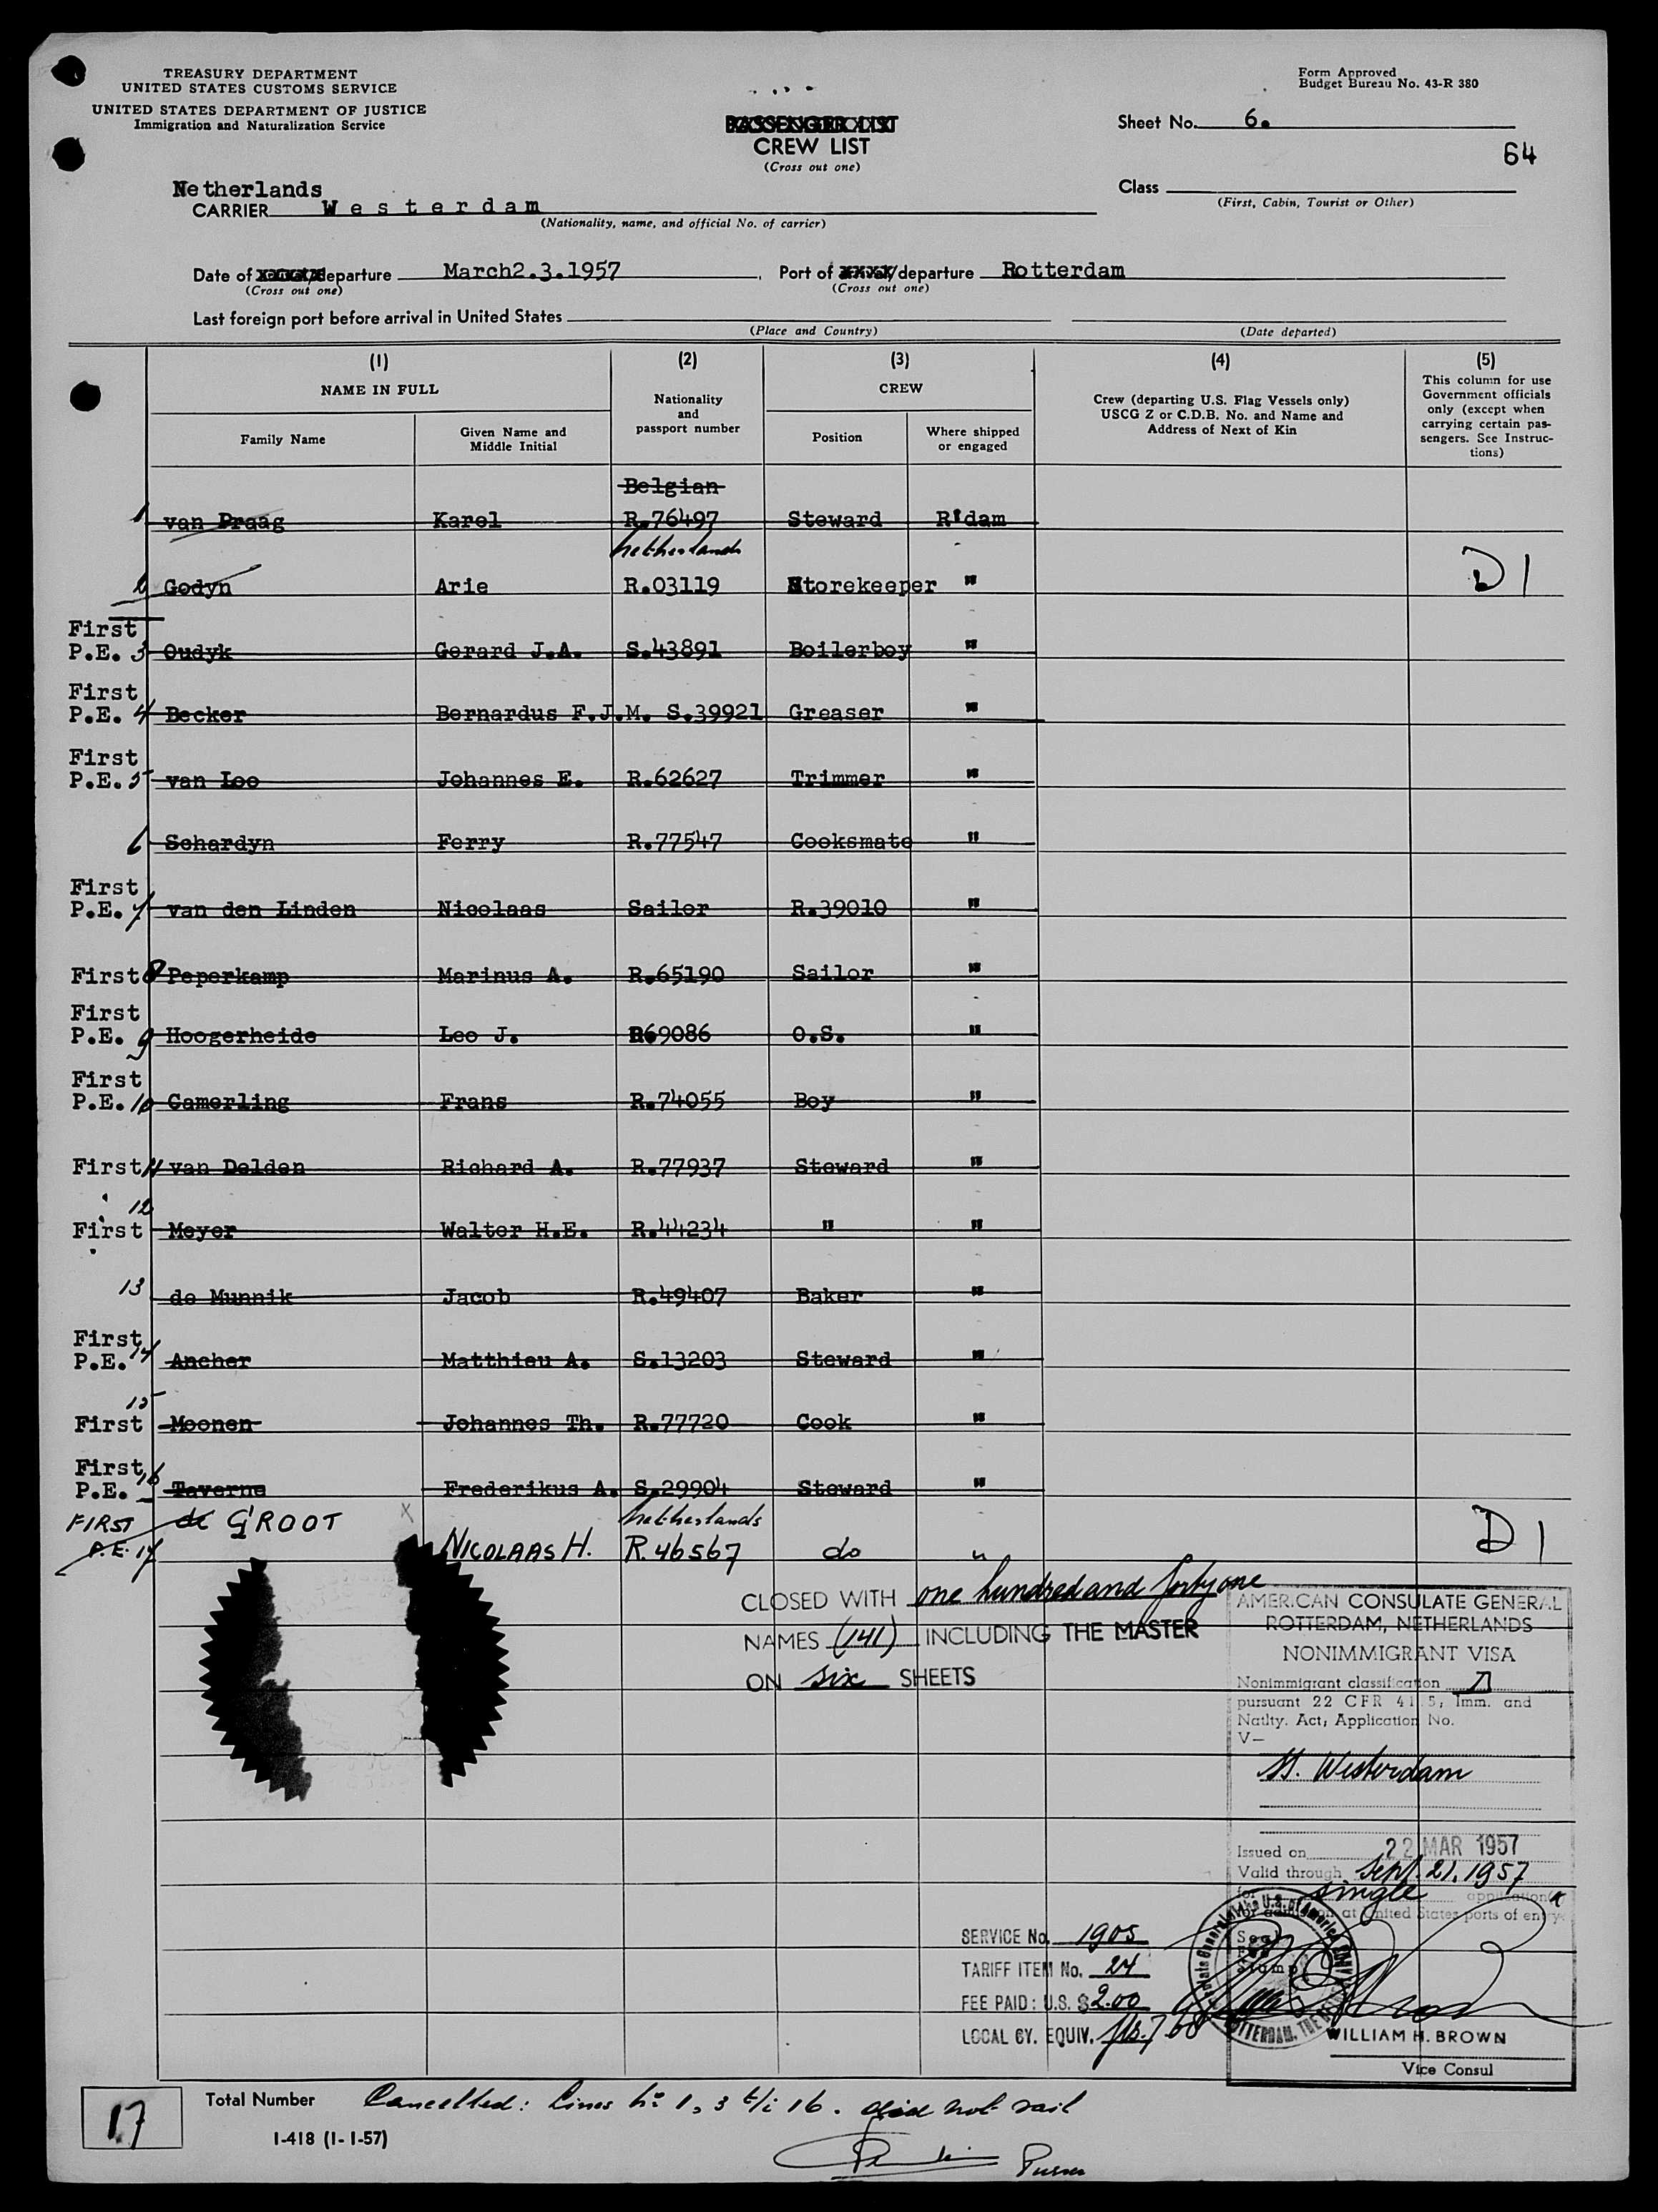 TREASURY DEPARTMENT
UNITED STATES CUSTOMS SERVICE
UNITED STATES DEPARTMENT OF JUSTICE
Immigration and Naturalization Service
Form Approved
Budget Bureau No. 43-R 380
PASSENGER LIST
CREW LIST
(Cross out one)
Sheet No. 6.
64
Netherlands
CARRIER Westerdam
(Nationality, name, and official No. of carrier)
Class
(First, Cabin, Tourist or Other)
Date of departure March2.3.1957
(Cross out one)
Port of arrival/departure Rotterdam
(Cross out one)
Last foreign port before arrival in United States
(Place and Country)
(Date departed)
(1) (2) (3) (4) (5)
NAME IN FULL
Family Name
Given Name and Middle Initial
Nationality and passport number
CREW
Position
Where shipped or engaged
Crew (departing U.S. Flag Vessels only) USCG Z or C.D.B. No. and Name and Address of Next of Kin
This column for use Government officials only (except when carrying certain passengers. See Instructions)
Belgian
1 van Praag Karel R.76497 Steward R'dam
Netherlands
2 Godyn Arie R.03119 Storekeeper " D1
First
P.E. 3 Oudyk Gerard J.A. S.43891 Boilerboy "
First
P.E. 4 Becker Bernardus F.J.M. S.39921 Greaser "
First
P.E. 5 van Loo Johannes E. R.62627 Trimmer "
6 Schardyn Ferry R.77547 Cooksmate "
First
P.E. 7 van den Linden Nicolaas Sailor R.39010 "
First 8 Peperkamp Marinus A. R.65190 Sailor "
First
P.E. 9 Hoogerheide Leo J. R69086 O.S. "
First
P.E. 10 Camerling Frans R.74055 Boy "
First 11 van Delden Richard A. R.77937 Steward "
12
First Meyer Walter H.E. R.44234 " "
13 de Munnik Jacob R.49407 Baker "
First
P.E. 14 Ancher Matthieu A. S.13203 Steward "
15
First Moonen Johannes Th. R.77720 Cook "
First
P.E. 16 Taverne Frederikus A. S.29904 Steward "
FIRST de GROOT Netherlands
P.E. 17 NICOLAAS H. R.46567 do " D1
CLOSED WITH one hundred and forty one
NAMES (141) INCLUDING THE MASTER
ON six SHEETS
AMERICAN CONSULATE GENERAL
ROTTERDAM, NETHERLANDS
NONIMMIGRANT VISA
Nonimmigrant classification D
pursuant 22 CFR 41.5; Imm. and
Natlty. Act; Application No.
V—
SS. Westerdam
Issued on 22 MAR 1957
Valid through Sept. 21. 1957
for single application
for admission at United States ports of entry.
Seal
Stamp
SERVICE No. 1905
TARIFF ITEM No. 24
FEE PAID: U.S. $2.00
LOCAL CY. EQUIV. fls. 7.60
WILLIAM H. BROWN
Vice Consul
17
Total Number
Cancelled: Lines No 1, 3 t/i 16. did not sail
I-418 (1-1-57)
Purser